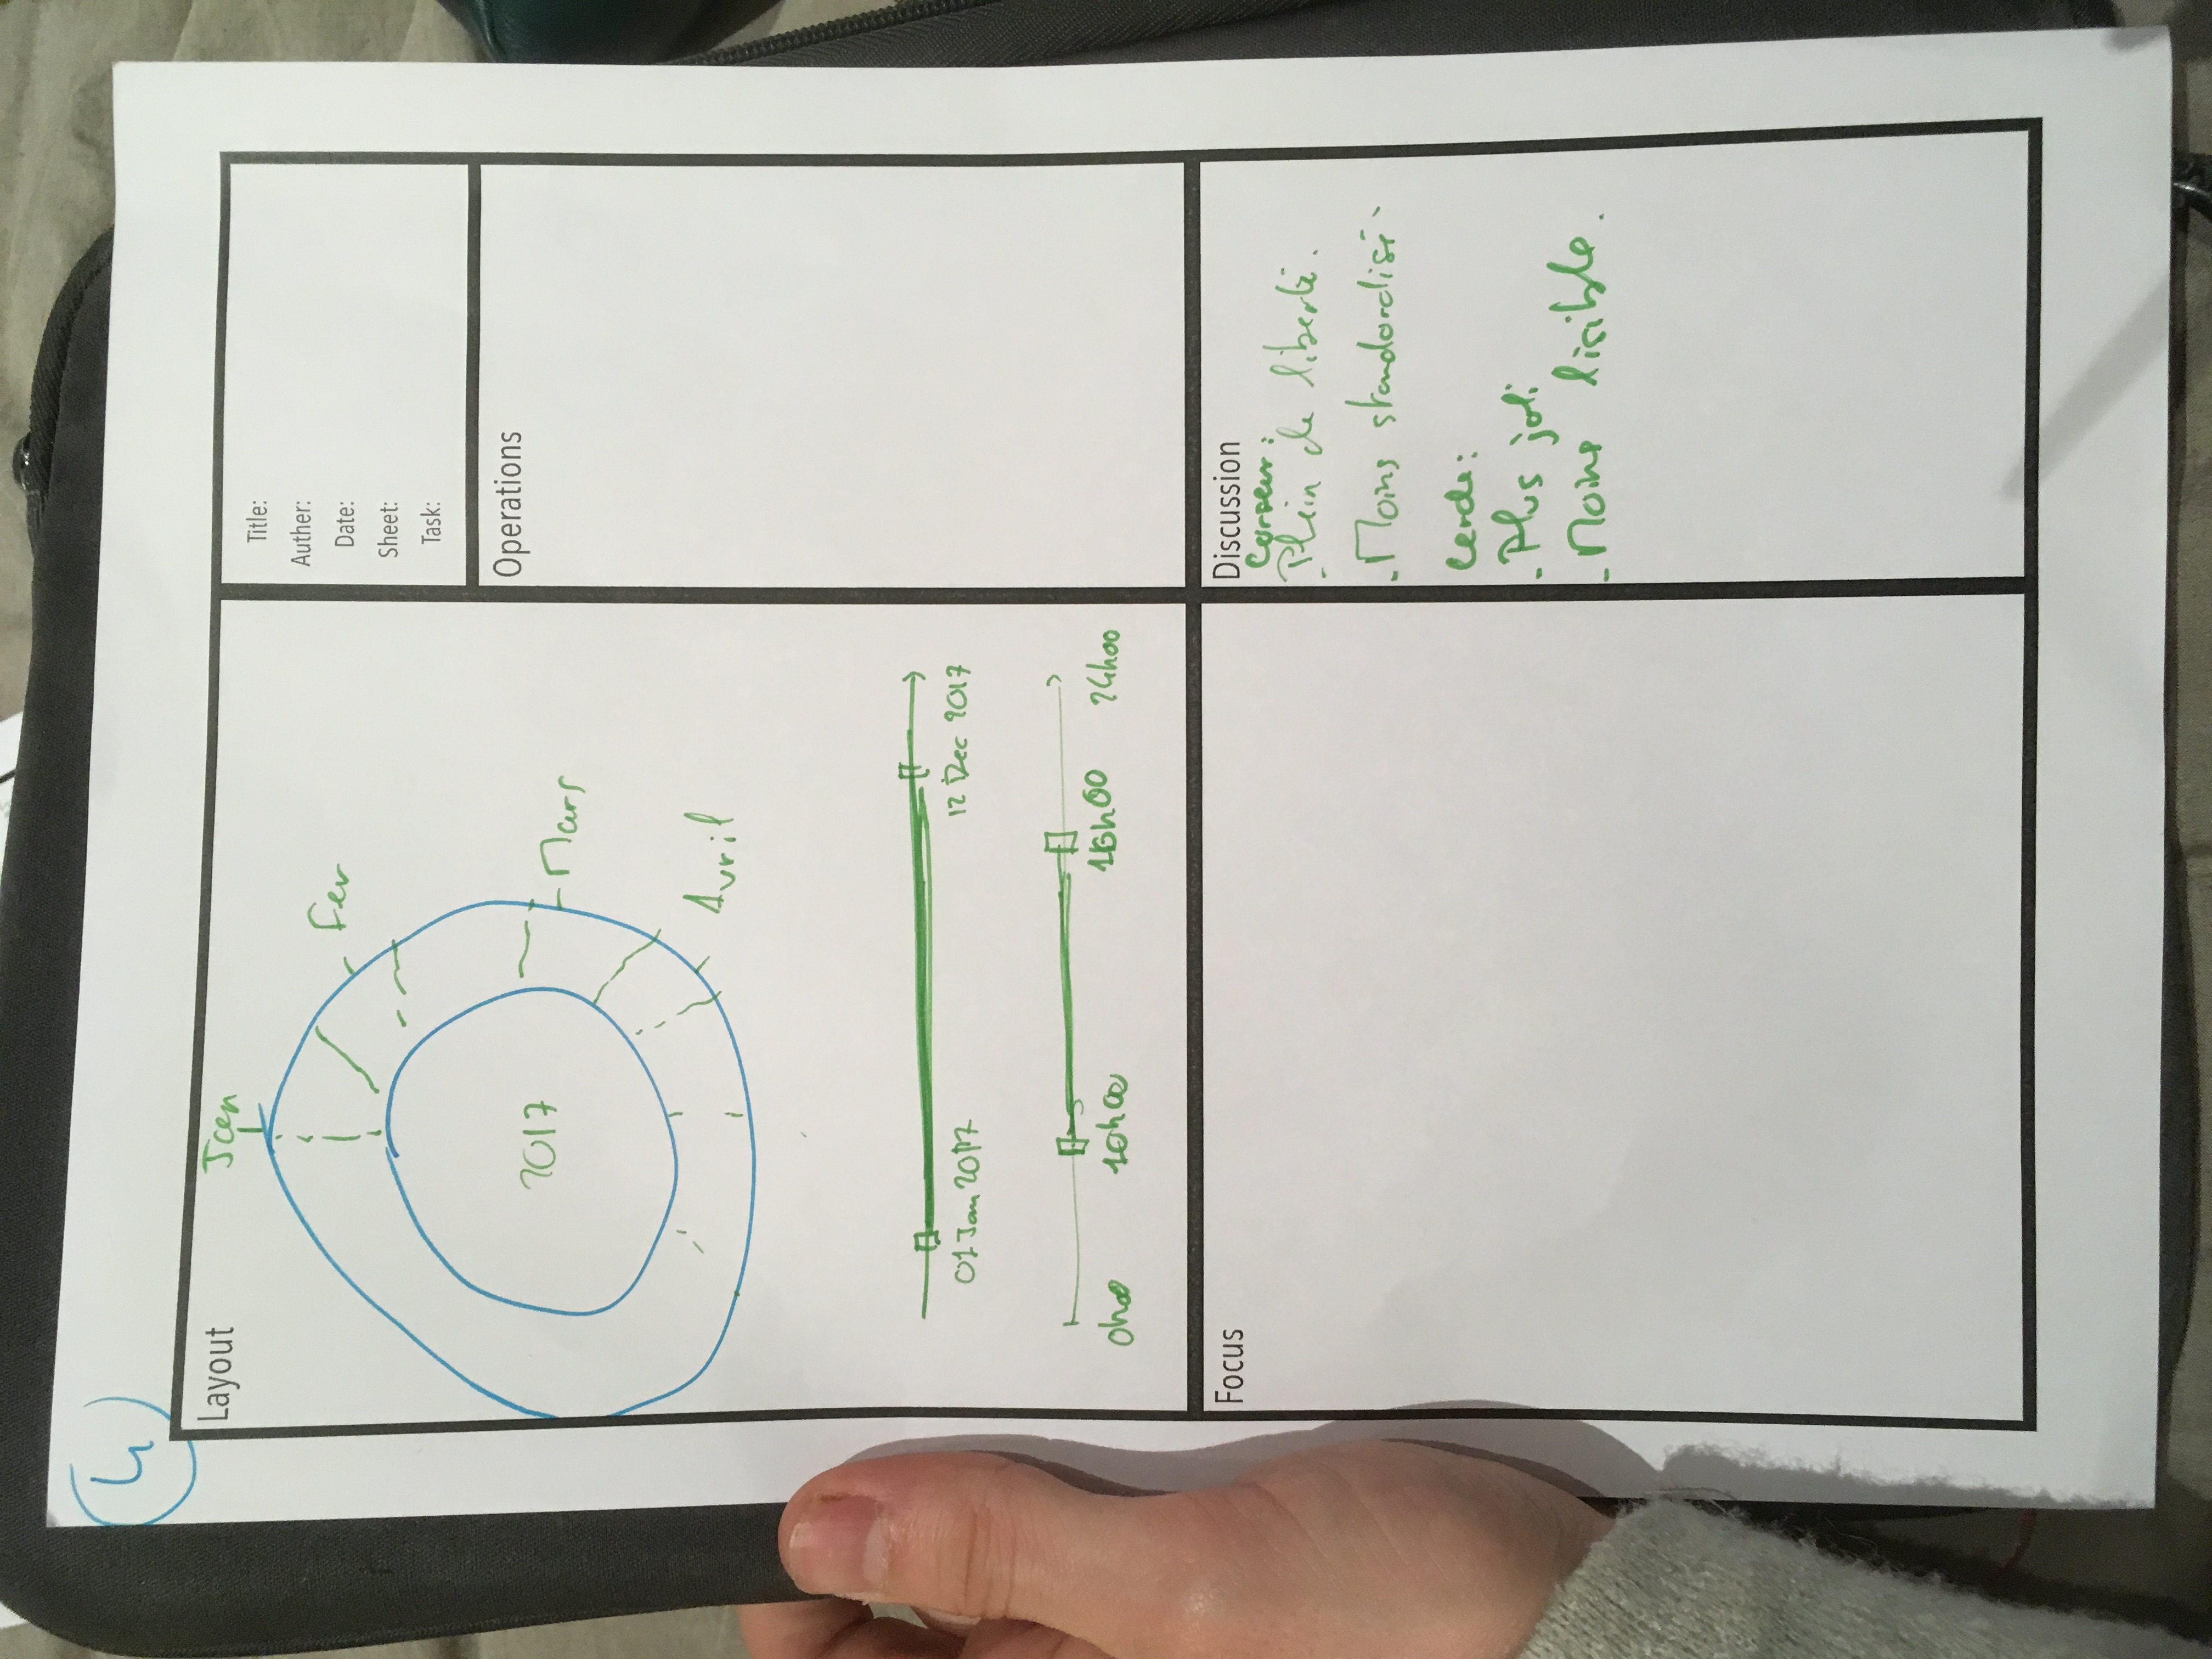 4
Layout
Jan
Fev
Mars
Avril
2017
01 Jan 2017
12 Dec 2017
0h00
10h00
16h00
24h00
Title:
Auther:
Date:
Sheet:
Task:
Operations
Focus
Discussion
Curseur:
- Plein de liberté.
- Moins standardisé.
Cercle:
- Plus joli
- Moins lisible.